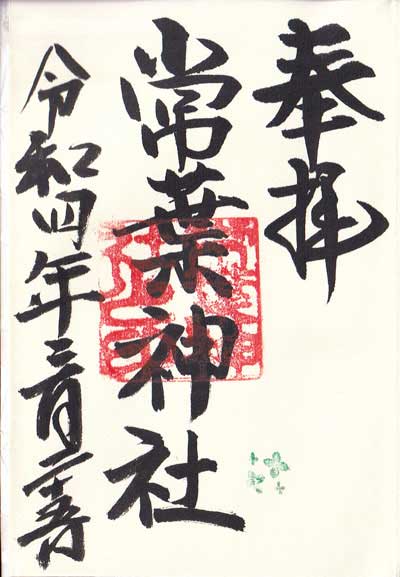 奉拝
常葉神社
令和四年三月二十